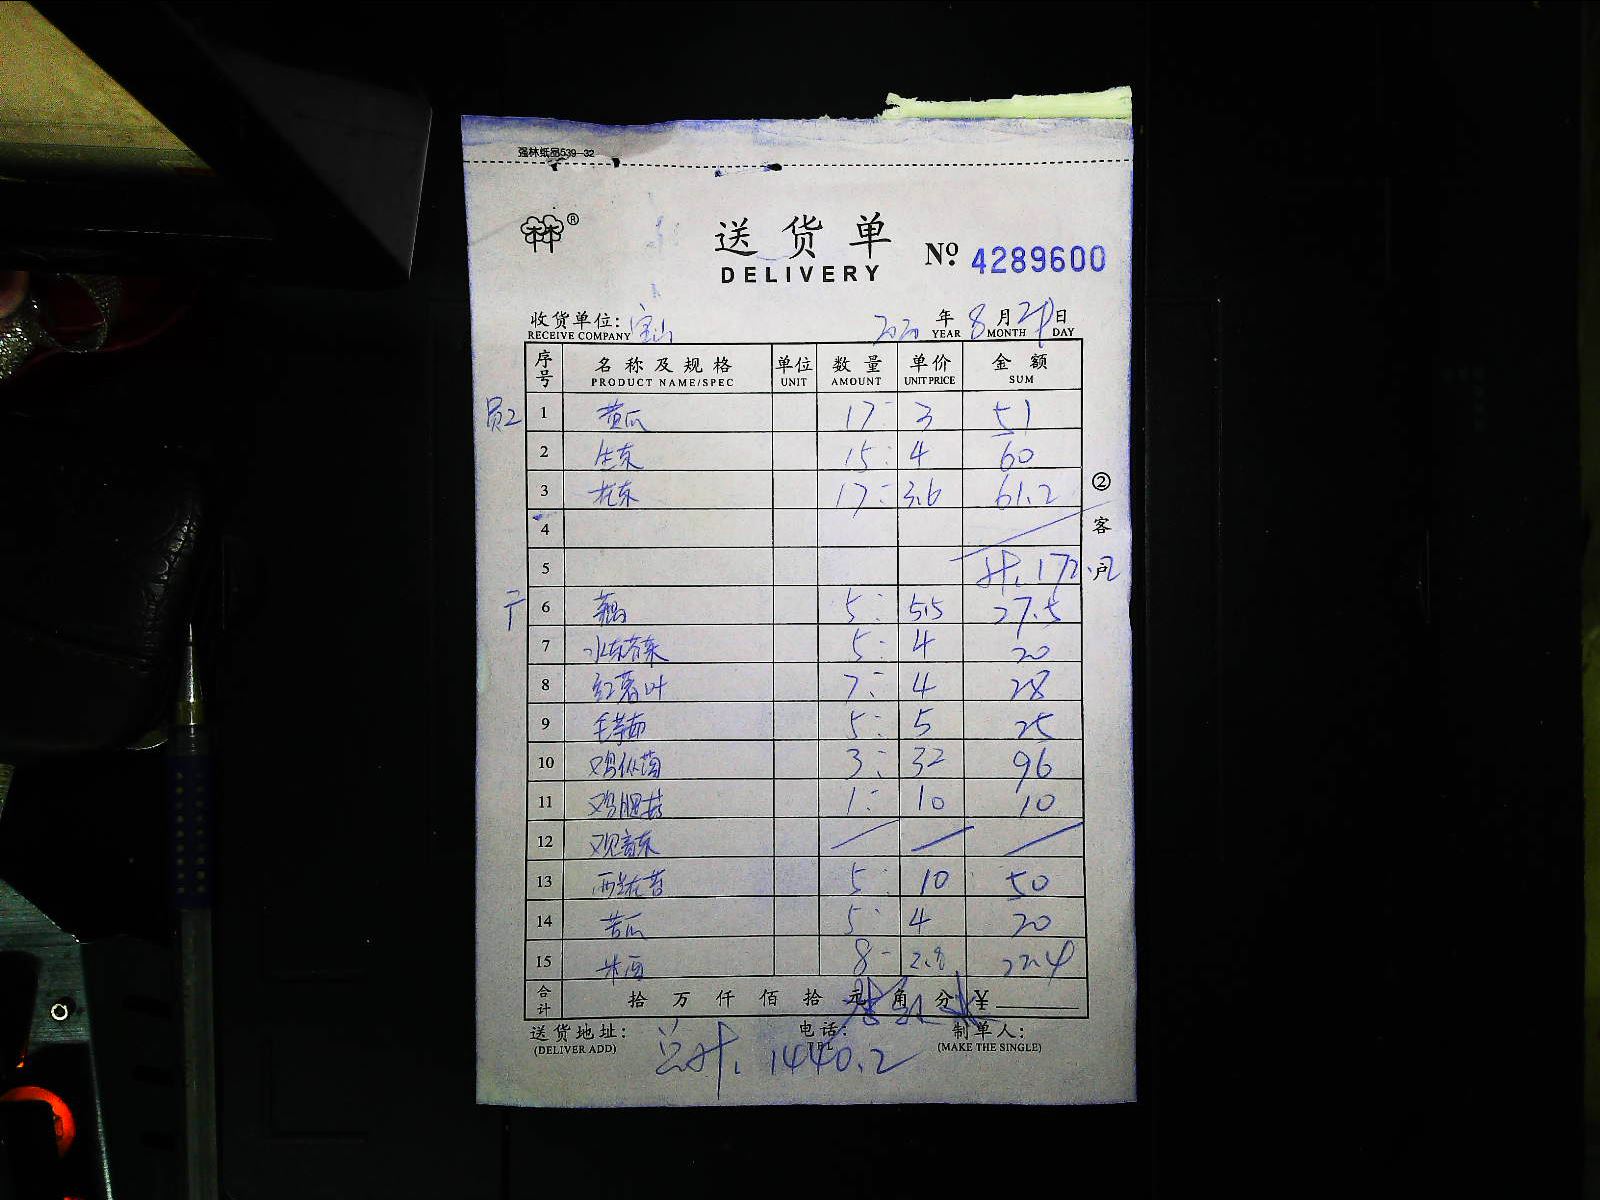 强林纸品539-32
林®
送货单
DELIVERY
No. 4289600
收货单位: 宝山 2020 年 8 月 29 日
RECEIVE COMPANY YEAR MONTH DAY
序号 名称及规格 单位 数量 单价 金额
PRODUCT NAME/SPEC UNIT AMOUNT UNIT PRICE SUM
员2 1 黄瓜 17: 3 51
2 生菜 15: 4 60
3 花菜 17: 3.6 61.2
4
5 计. 172.2
6 藕 5: 5.5 27.5
7 水东芥菜 5: 4 20
8 红薯叶 7: 4 28
9 毛芋苗 5: 5 25
10 鸡枞菌 3: 32 96
11 鸡腿菇 1: 10 10
12 观音菜
13 西兰花苔 5: 10 50
14 苦瓜 5: 4 20
15 米西 8- 2.8 22.4
合计 拾 万 仟 佰 拾 元 角 分 ¥
送货地址: 电话: 制单人:
(DELIVER ADD) TEL (MAKE THE SINGLE)
总计. 1440.2
②客户